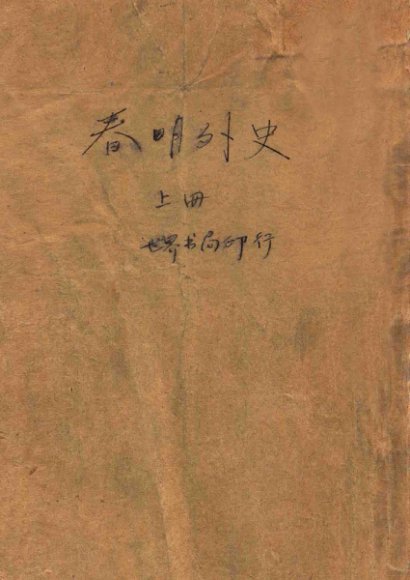 春明外史
上册
世界书局印行